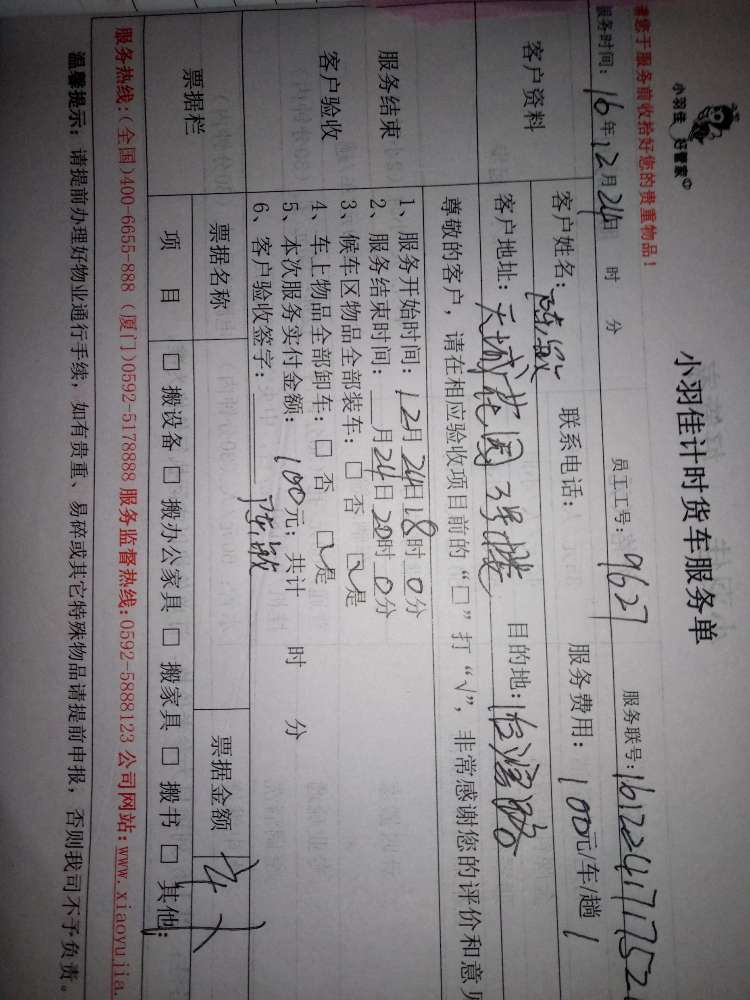 小羽佳 好管家
小羽佳计时货车服务单
请您于服务前收拾好您的贵重物品！
服务时间：16年12月24日 时 分 员工工号：9627 服务联号：1612241711752
客户资料
客户姓名：陈敏 联系电话： 服务费用：100元/车/趟
客户地址：天城花园3号楼 目的地：
尊敬的客户，请在相应验收项目前的“□”打“√”，非常感谢您的评价和意见
服务结束
客户验收
1、服务开始时间：12月24日18时0分
2、服务结束时间：__月24日20时0分
3、候车区物品全部装车：□ 否 □是
4、车上物品全部卸车：□ 否 □是
5、本次服务实付金额：100元；共计 时 分
6、客户验收签字：陈敏
票据栏
票据名称 票据金额
项 目 □ 搬设备 □ 搬办公家具 □ 搬家具 □ 搬书 □ 其他：
服务热线：(全国)400-6655-888 (厦门)0592-5178888 服务监督热线：0592-5888123 公司网站：www.xiaoyujia.
温馨提示：请提前办理好物业通行手续，如有贵重、易碎或其它特殊物品请提前申报，否则我司不予负责。